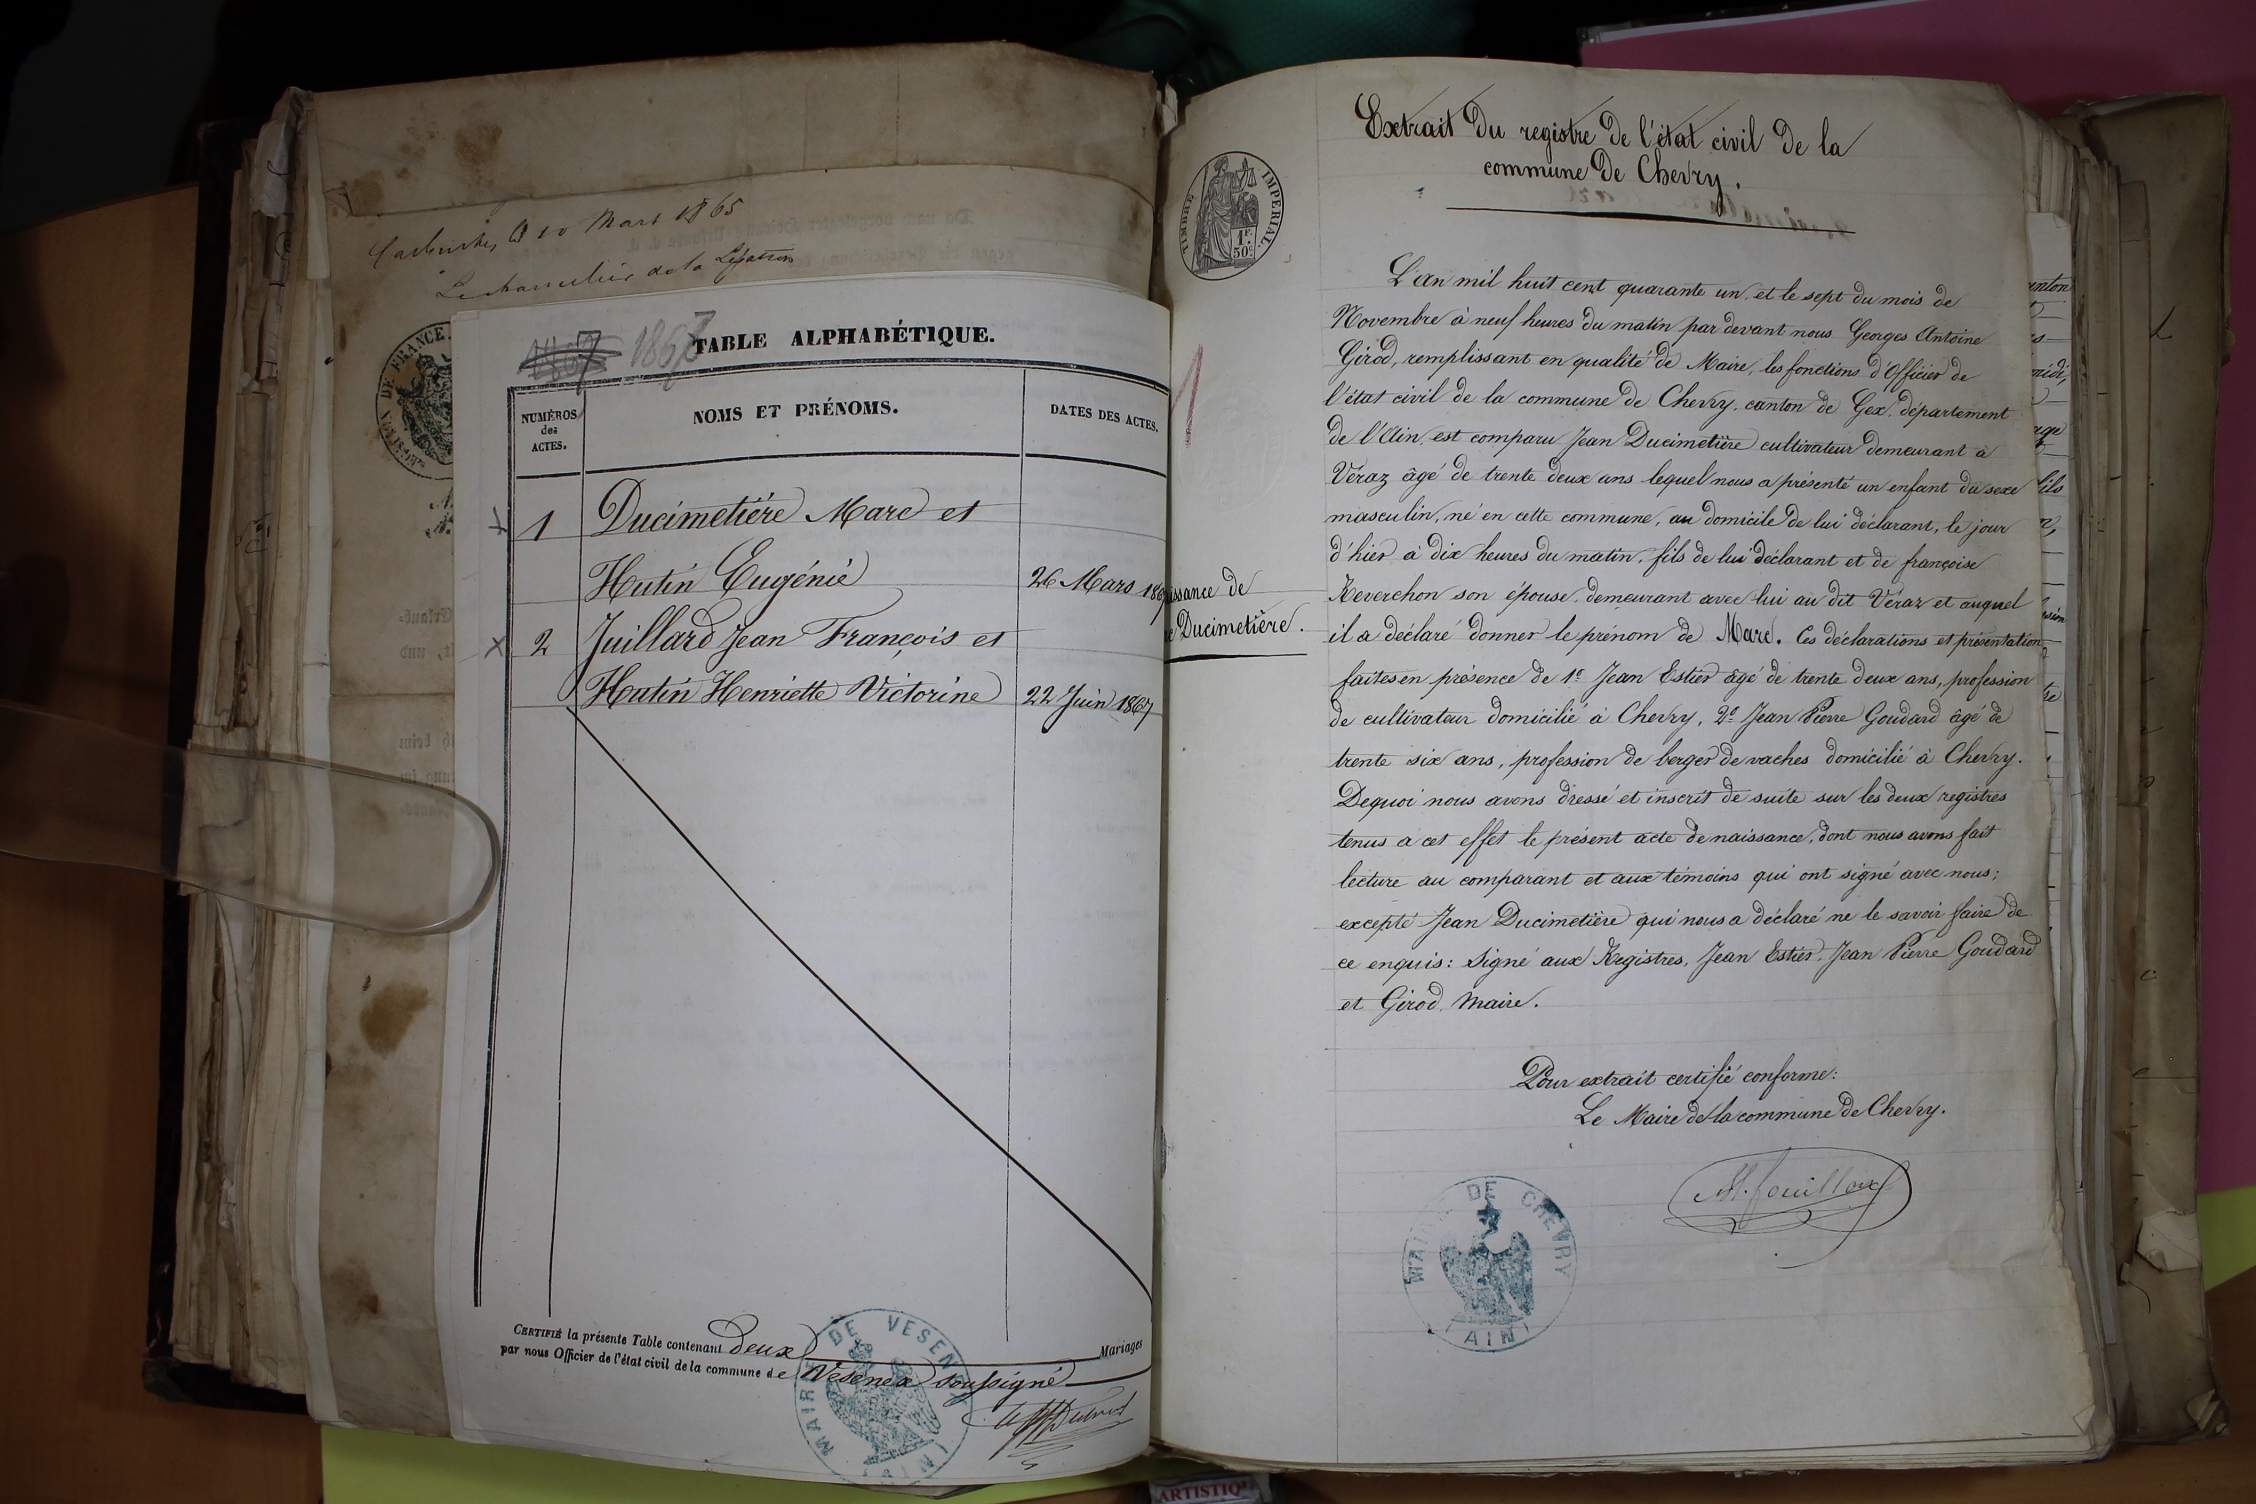 10 Mars 1865
de la Légation
DE FRANCE.
1867
TABLE ALPHABÉTIQUE.
NUMÉROS des ACTES.
NOMS ET PRÉNOMS.
DATES DES ACTES.
1 Ducimetière Marc et
Hutin Eugénie 26 Mars 186
2 Juillard Jean François et
Hutin Henriette Victorine 22 Juin 1867
CERTIFIÉ la présente Table contenant deux Mariages
par nous Officier de l'état civil de la commune de Vesenex soussigné
MAIRIE DE VESENEX
AIN
Extrait du registre de l'état civil de la
commune de Chevry.
TIMBRE IMPERIAL.
1F. 50c
1
issance de
Ducimetière.
L'an mil huit cent quarante un, et le sept du mois de
Novembre à neuf heures du matin par devant nous Georges Antoine
Girod, remplissant en qualité de Maire, les fonctions d'Officier de
l'état civil de la commune de Chevry, canton de Gex, département
de l'Ain, est comparu Jean Ducimetière cultivateur demeurant à
Véraz âgé de trente deux ans lequel nous a présenté un enfant du sexe
masculin, né en cette commune, au domicile de lui déclarant, le jour
d'hier à dix heures du matin, fils de lui déclarant et de françoise
Reverchon son épouse, demeurant avec lui au dit Véraz et auquel
il a déclaré donner le prénom de Marc. Ces déclarations et présentation
faites en présence de 1º Jean Estier âgé de trente deux ans, profession
de cultivateur domicilié à Chevry, 2º Jean Pierre Goudard âgé de
trente six ans, profession de berger de vaches domicilié à Chevry.
Dequoi nous avons dressé et inscrit de suite sur les deux registres
tenus a cet effet le présent acte de naissance, dont nous avons fait
lecture au comparant et aux témoins qui ont signé avec nous;
excepté Jean Ducimetière qui nous a déclaré ne le savoir faire de
ce enquis: Signé aux Registres, Jean Estier, Jean Pierre Goudard
et Girod, Maire.
Pour extrait certifié conforme:
Le Maire de la commune de Chevry.
MAIRIE DE CHEVRY
(AIN)
ARTISTIQ